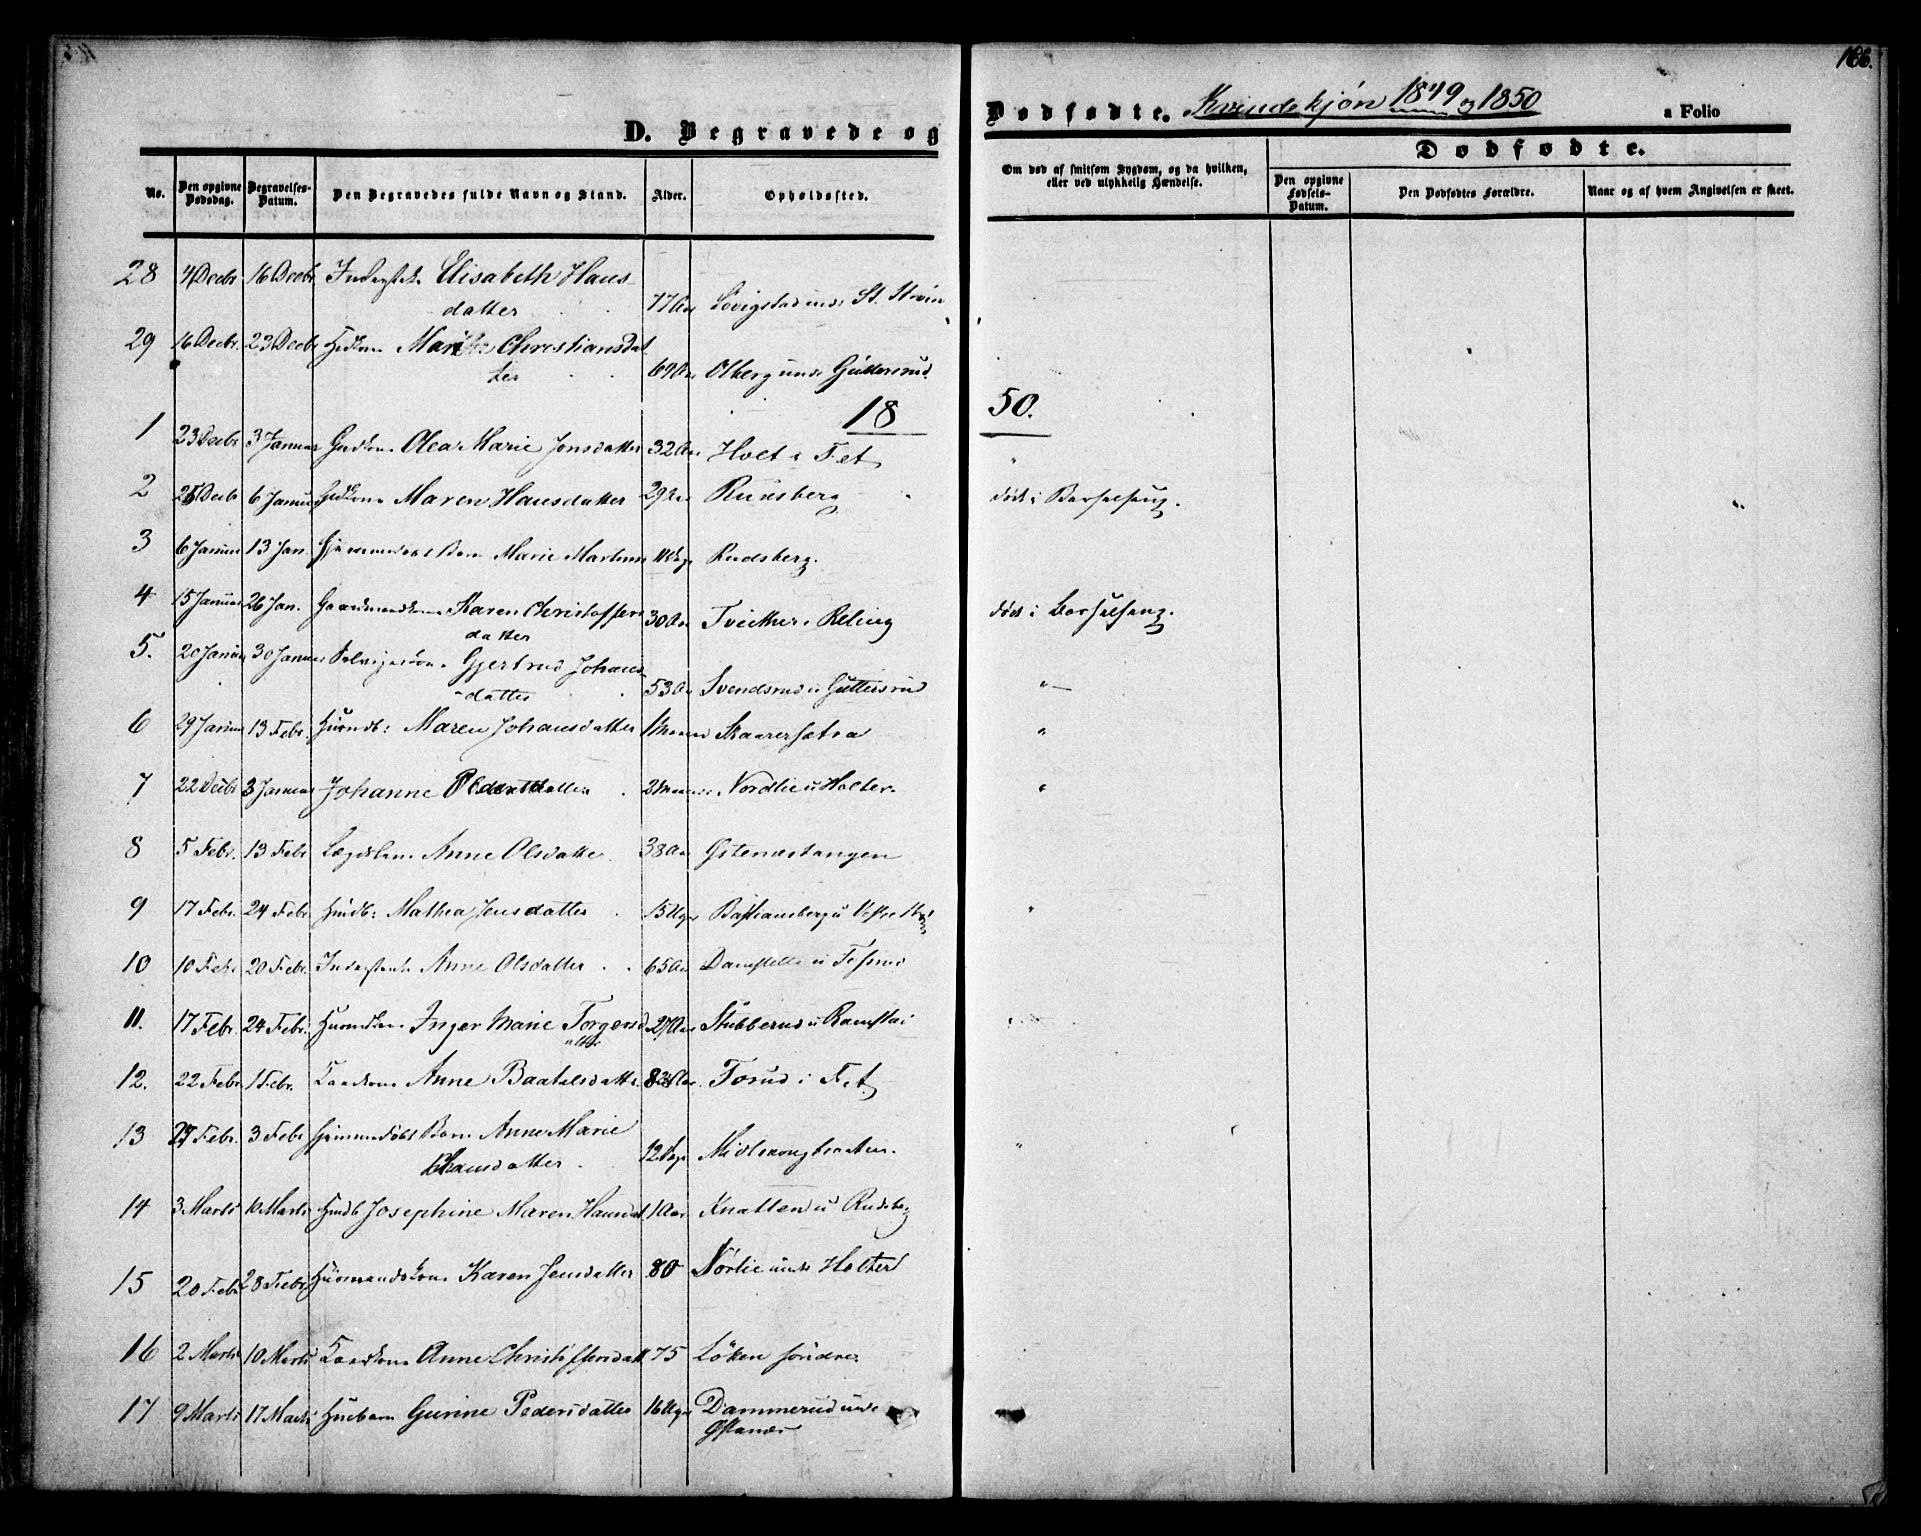 186.
D. Begravede og Dødfødte. Kvindekjøn 1849 og 1850 a Folio
No. Den opgivne Dødsdag. Begravelses-Datum. Den Begravedes fulde Navn og Stand. Alder. Opholdssted. Om død af smitsom Sygdom, og da hvilken, eller ved ulykkelig Hændelse. Dødfødte.
Den opgivne Fødsels-Datum. Den Dødfødtes Forældre. Naar og af hvem Angivelsen er skeet.
28 4 Decbr 16 Decbr Elisabeth Hans
datter 77 Aar
29 16 Decbr. 23 Decbr Christiansdat
ter 69 Aar Olberg under Guttersrud.
1850.
1 23 Decbr 3 Januar Olea Marie Jonsdatter 32 Aar Holt i Fet
2 Decbr 6 Januar Maren Hansdatter 29 Aar Rudsberg død i Barselseng.
3 6 Januar 13 Jan. Hjemmedøbt Barn Marie Martinus Rudsberg.
4 15 Januar 26 Jan. Gaardmandskone Karen Christoffers
datter 30 Aar Tveither i Reling død i Barselseng.
5. 20 Januar 30 Januar Gjertrud Johans
datter 53 Aar Svendsrud u Guttersrud "
6 29 Januar 13 Febr. Husmdb: Maren Johansdatter 1 Maaned Skaarersætra "
7 22 Decbr 3 Januar Johanne 2 Maaneder Nordlie u Holter. "
8 5 Febr. 13 Febr Lægdslem Anne Olsdatter 38 Aar Gstenæstangen
9 17 Febr. 24 Febr. Husdb: Mathea Jensdatter 15 Uger Bastiansberg u Vestre "
10 10 Febr 20 Febr. Inderstenke Anne Olsdatter 65 Aar
11. 17 Febr. 24 Febr. Husmdkone Inger Marie Torgersd
atter 27 Aar Stubberud u Ramstai "
12. 22 Febr 1 Febr. Anne Baatelsdatter Aar. Torud i Fet
13 Febr. 3 Febr Hjemmedøbt Barn Anne Marie
Hansdatter 12 Dage Midtskougbraaten. "
14 3 Marts 10 Marts Husdb Josephine Maren Hansdat 1 Aar Knatten u Rudsberg
15 20 Febr 28 Febr. Husmandskone Karen Jensdatter 80 Nørlie under Holter
16 2 Marts 10 Marts Anne Christoffersdatt 75 Løken søndre.
17 9 Marts 17 Marts Husbarn Gunine Pedersdatter 16 Uger Dammerud under
Gstenæs